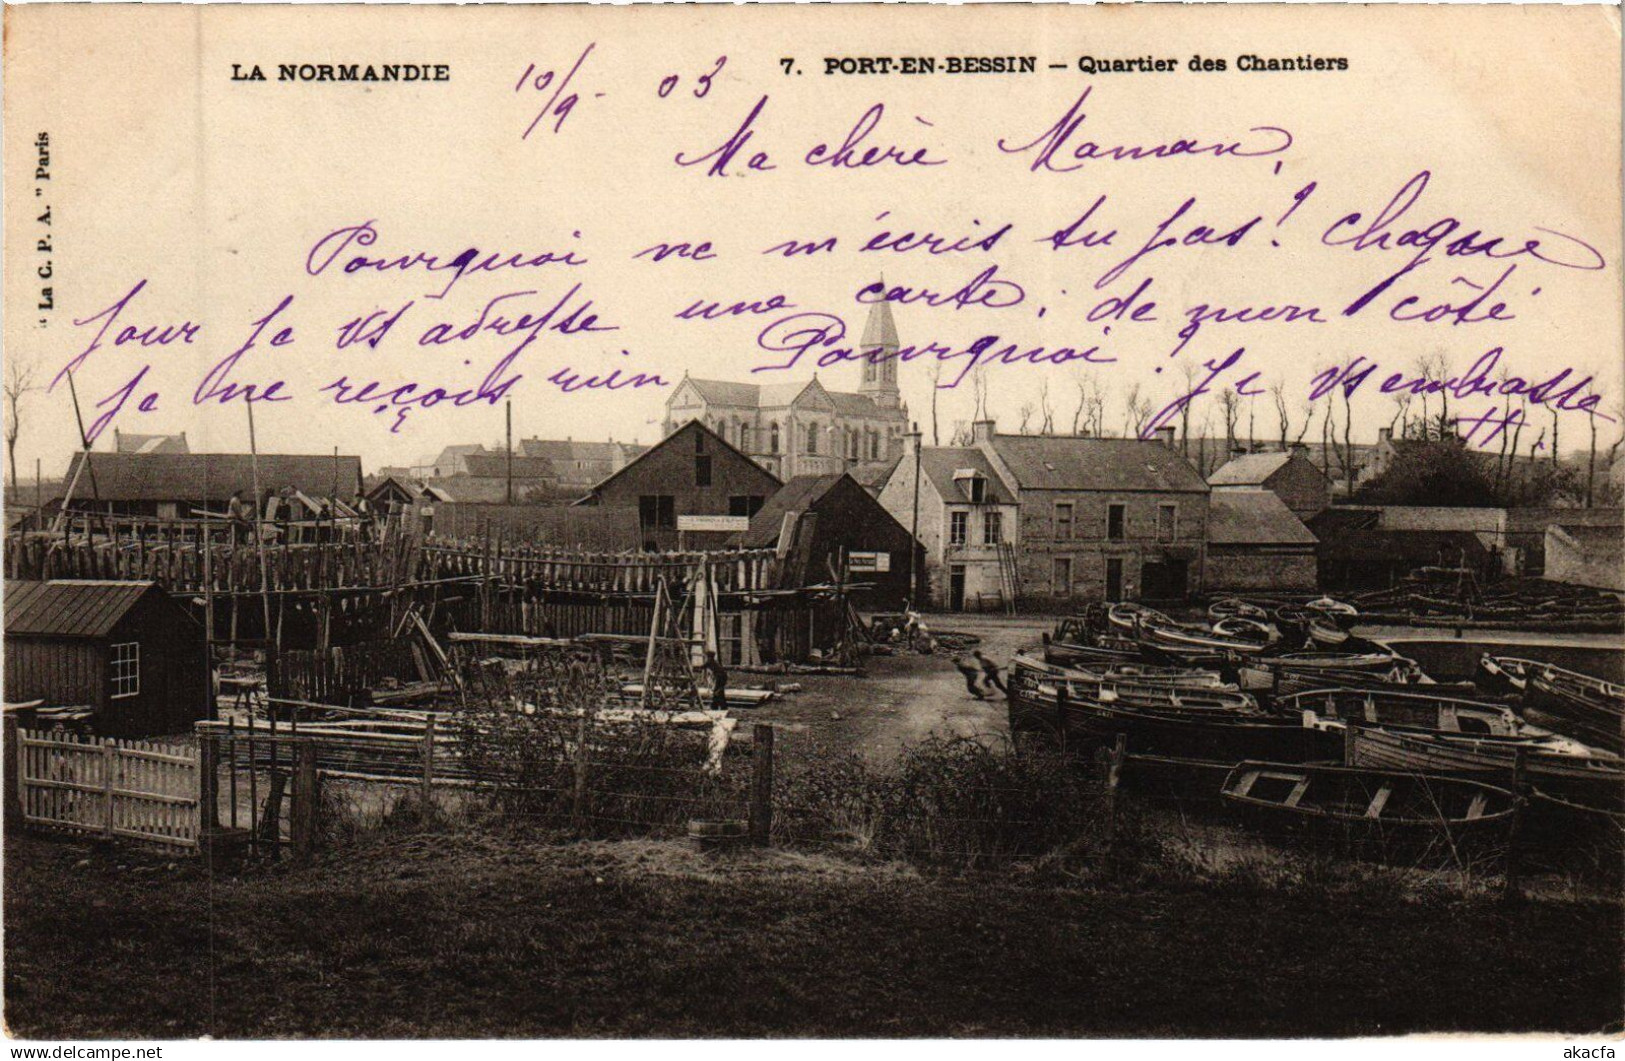 LA NORMANDIE
10/9 - 03
7. PORT-EN-BESSIN — Quartier des Chantiers
"La C. P. A." Paris
Ma chère Maman,
Pourquoi ne m'écris tu pas! Chaque
jour je vs adresse une carte; de mon côté
je ne reçois rien Pourquoi? Je vs embrasse
H.
delcampe.net
akacfa